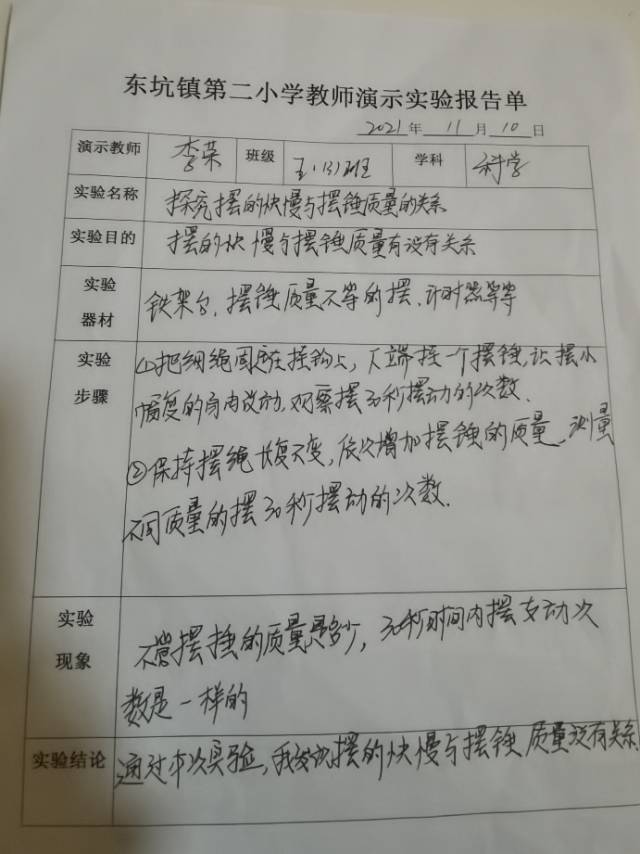 东坑镇第二小学教师演示实验报告单
2021年 11月 10日
演示教师 李荣 班级 五(3)班 学科 科学
实验名称 探究摆的快慢与摆锤质量的关系
实验目的 摆的快慢与摆锤质量有没有关系
实验器材 铁架台、摆锤质量不等的摆、计时器等等
实验步骤 ①把细绳固定在挂钩上,下端挂一个摆锤,让摆小
幅度的自由摆动,观察摆30秒摆动的次数.
②保持摆绳长度不变,依次增加摆锤的质量,测量
不同质量的摆30秒摆动的次数.
实验现象 不管摆锤的质量是多少,30秒时间内摆动次
数是一样的
实验结论 通过本次实验,我发现摆的快慢与摆锤质量没有关系